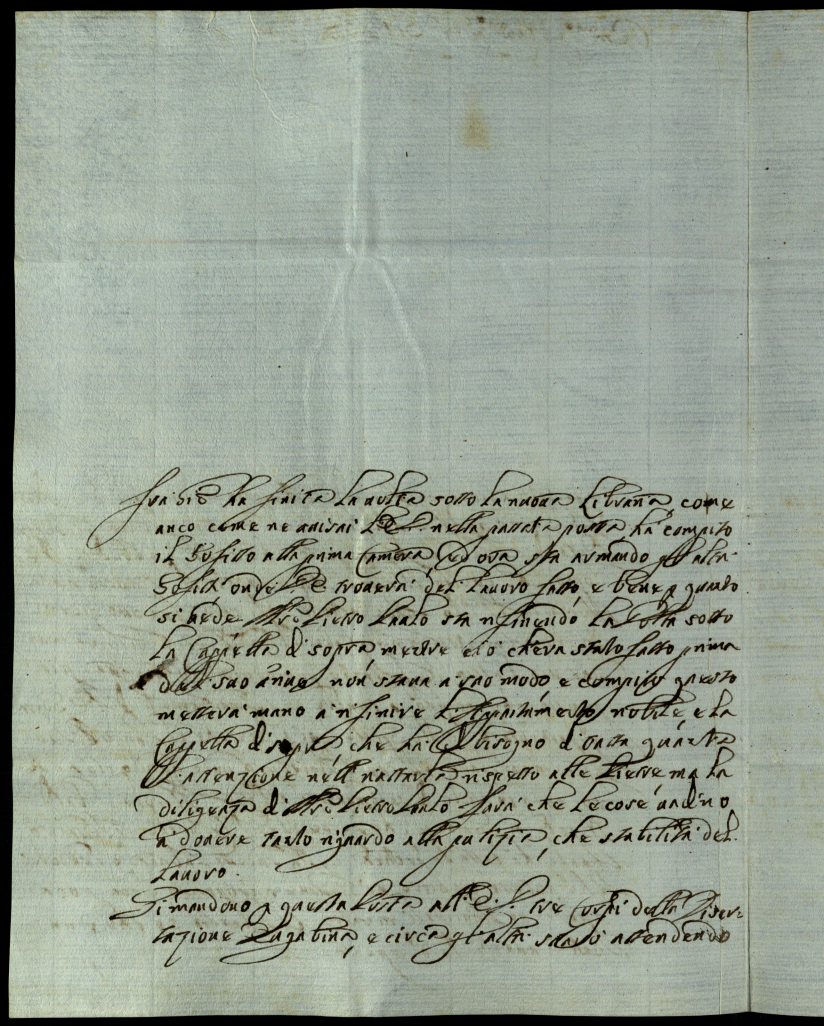 ha finita la volta sotto la nuova Libraria come
anco come ne avisai V.E. nella passata posta ha compito
il Sofitto alla prima Camera, ed ora sta armando gl'altri
Sofitti onde V.E. troverà del lavoro fatto, e bene p quanto
si vede Mro Pietro Paolo sta rifinendo la Volta sotto
la Cappella di sopra mentre ciò ch'era stato fatto prima
del suo non stava a suo modo e compito questo
metterà mano a rifinire l'Appartamento nobile, e la
Cappella di sopra che ha bisogno di tutta quanta
l'attenzione nell' rispetto alle Pietre ma la
diligenza di Mro Pietro Paolo farà che le cose andino
a dovere tanto riguardo alla pulizia, che stabilità del
Lavoro.
Si mandono p questa Posta all'E.V. tre Corpi della Disser=
tazione e circa gl'altri stavò attendendo